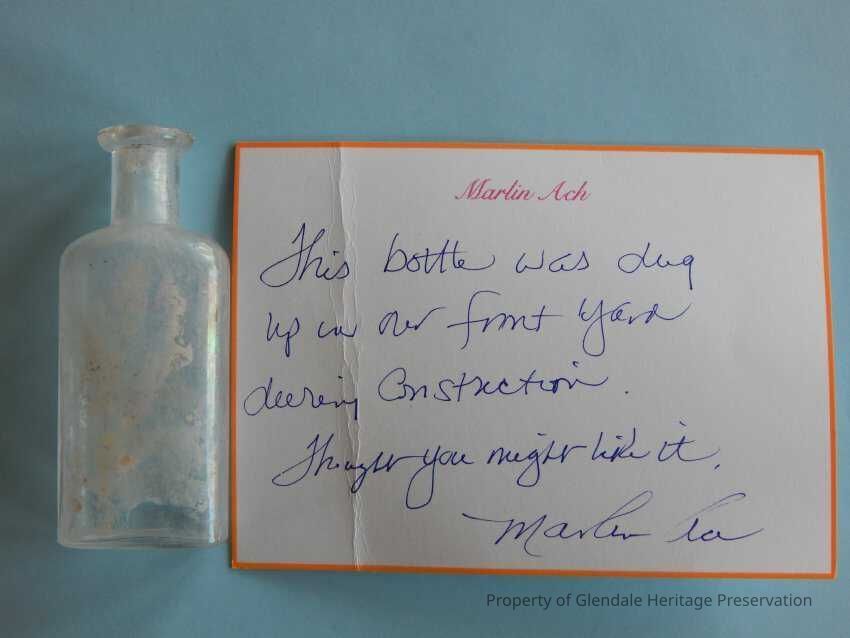 Marlin Ach
This bottle was dug
up in our front yard
during Construction.
Thought you might like it.
Marlin Ach
Property of Glendale Heritage Preservation